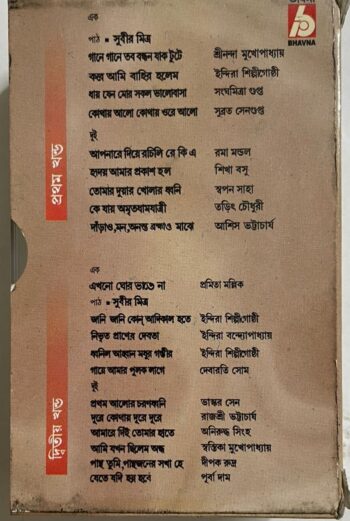 ভাবনা
BHAVNA
এক
পাঠ ▪ সুবীর মিত্র
গানে গানে তব বন্ধন যাক টুটে শ্রীনন্দা মুখোপাধ্যায়
কখন আমি বাহির হলেম ইন্দিরা শিল্পীগোষ্ঠী
ধায় যেন মোর সকল ভালোবাসা সংঘমিত্রা গুপ্ত
কোথায় আলো কোথায় ওরে আলো সুব্রত সেনগুপ্ত
দুই
আপনারে দিয়ে রচিলি রে কি এ রমা মন্ডল
হৃদয় আমার প্রকাশ হল শিখা বসু
তোমার দুয়ার খোলার ধ্বনি স্বপন সাহা
কে যায় অমৃতধামযাত্রী তড়িৎ চৌধুরী
দাঁড়াও,মন,অনন্ত ব্রহ্মাণ্ড মাঝে আশিস ভট্টাচার্য
প্রথম খন্ড
এক
এখনো ঘোর ভাঙে না প্রমিতা মল্লিক
পাঠ ▪ সুবীর মিত্র
জানি জানি কোন্ আদিকাল হতে ইন্দিরা শিল্পীগোষ্ঠী
নিভৃত প্রাণের দেবতা ইন্দিরা বন্দ্যোপাধ্যায়
ধ্বনিল আহ্বান মধুর গম্ভীর ইন্দিরা শিল্পীগোষ্ঠী
গায়ে আমার পুলক লাগে দেবারতি সোম
দুই
প্রথম আলোর চরণধ্বনি ভাস্কর সেন
দূরে কোথায় দূরে দূরে রাজশ্রী ভট্টাচার্য
আমারে দিই তোমার হাতে অনিরুদ্ধ সিংহ
আমি যখন ছিলেম অন্ধ স্বস্তিকা মুখোপাধ্যায়
পান্থ তুমি,পান্থজনের সখা হে দীপক রুদ্র
যেতে যদি হয় হবে পূর্বা দাম
দ্বিতীয় খন্ড